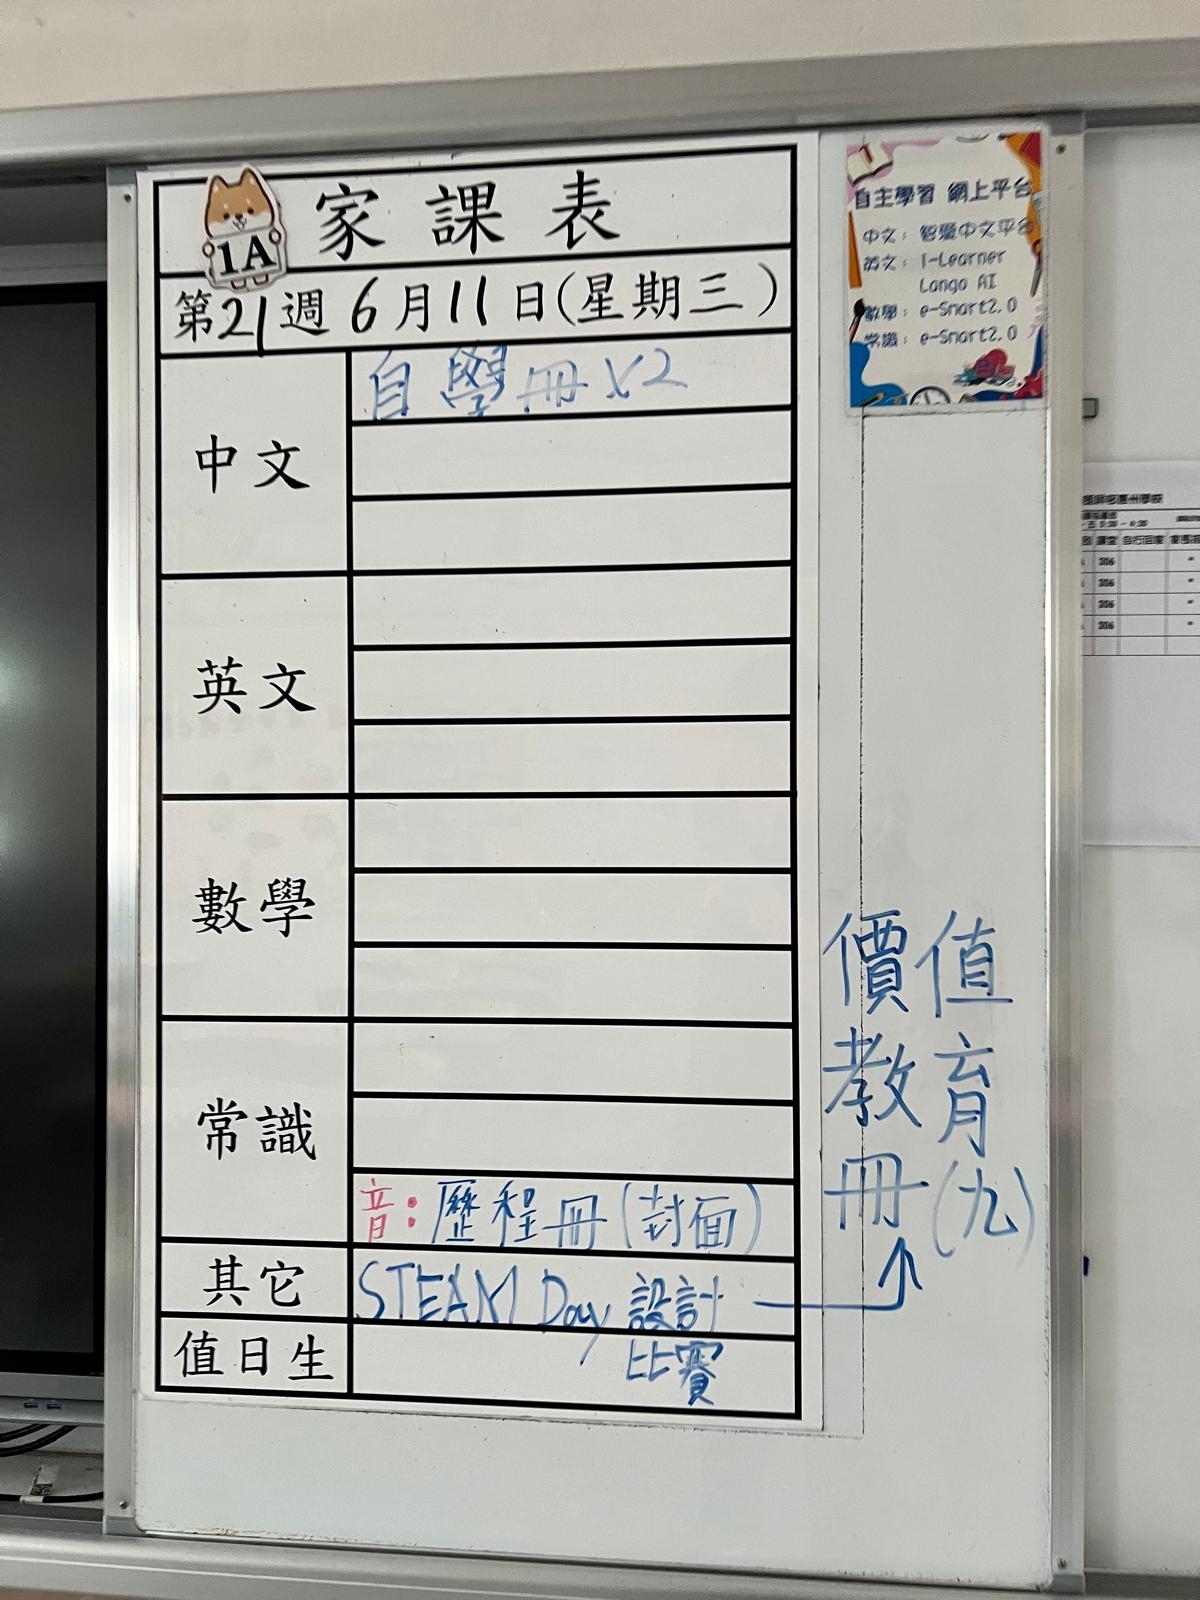 1A 家課表
第21週 6月11日(星期三)
中文
自學冊x2
英文
數學
常識
音:歷程冊(封面)
其它
STEAM Day 設計
比賽
值日生
價值
教育
冊(九)
自主學習 網上平台
中文: 智愛中文平台
英文: i-Learner
Longo AI
數學: e-Smart2.0
常識: e-Smart2.0
自行回家
306
306
306
306